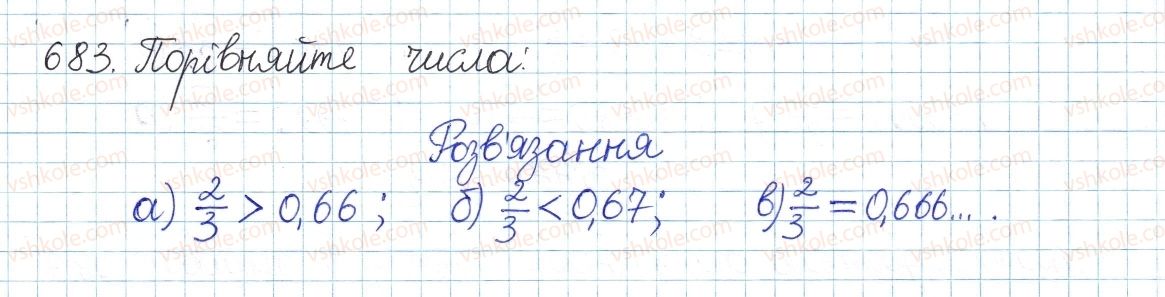 683. Порівняйте числа:
Розв'язання
а) 2/3 > 0,66 ; б) 2/3 < 0,67; в) 2/3 = 0,666... .
vshkole.com